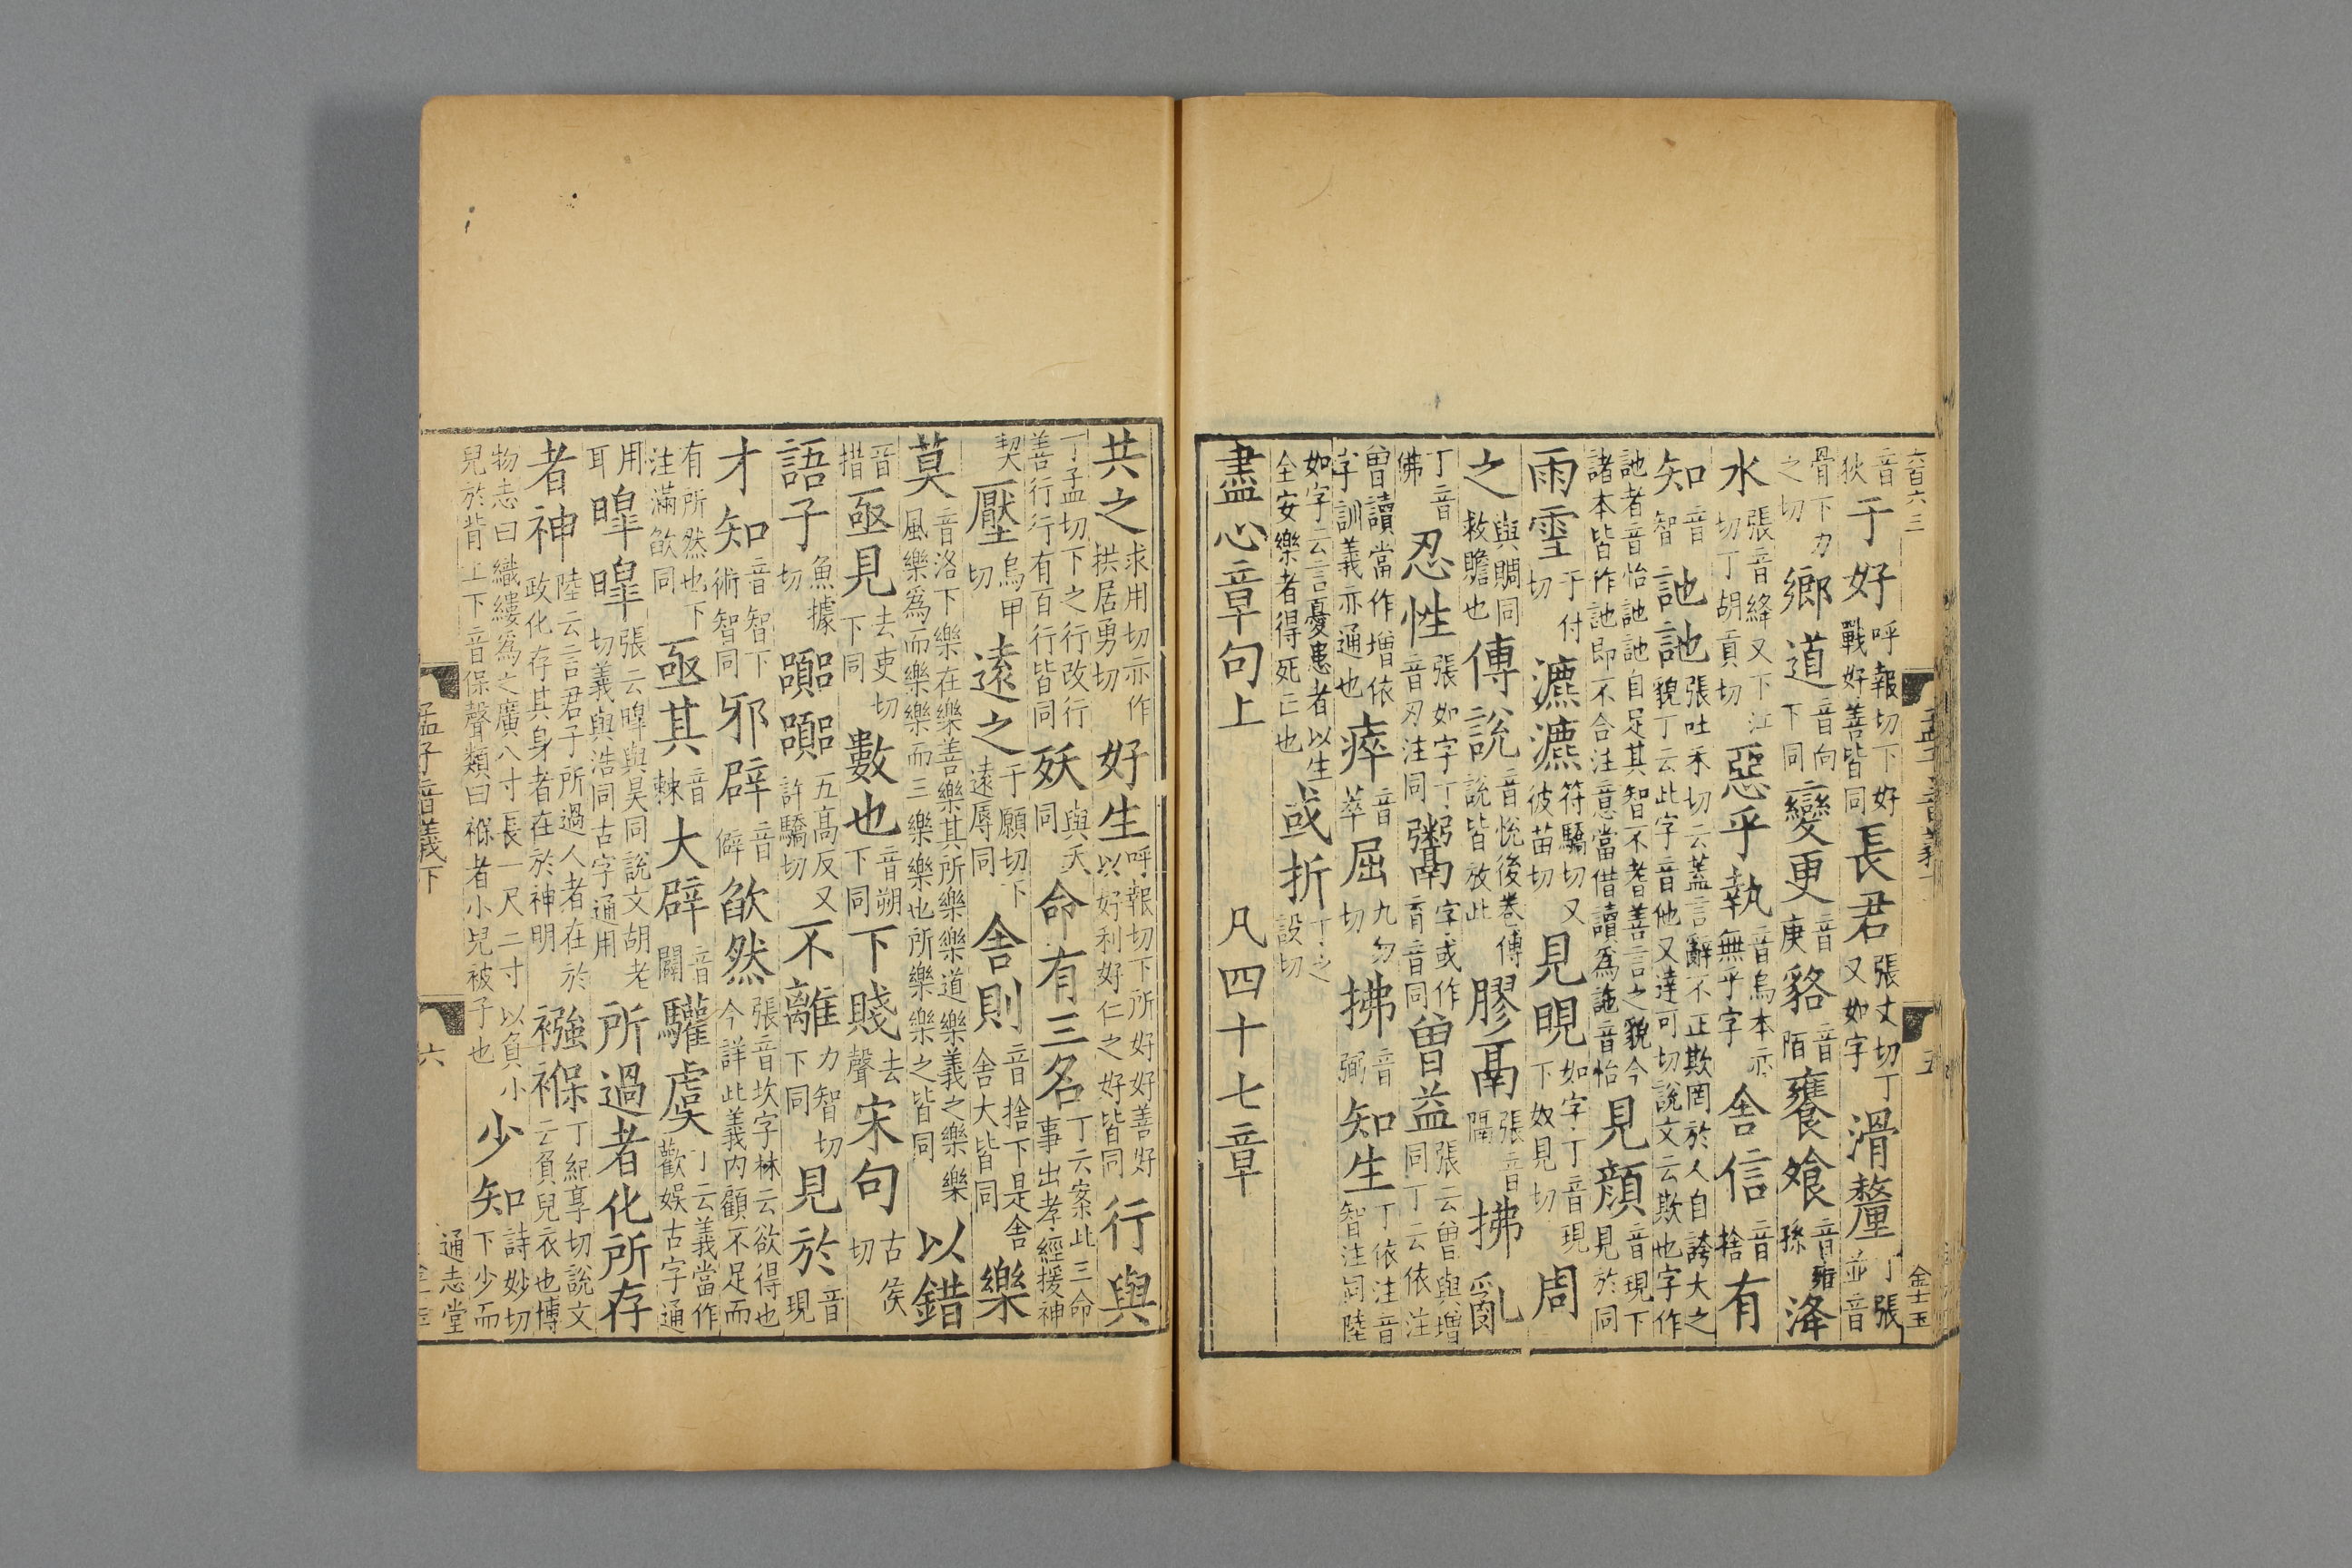 六百六三
孟子音義下
五
金士玉
音狄于好呼報切下好戰好善皆同長君張丈切丁又如字滑釐丁張並音
骨下力之切鄉道音向下同變更音庚貉音陌饔飧音雍孫洚
水張音絳又下江切丁胡貢切惡乎執音烏本亦無乎字舍信音捨有
知音智訑訑張吐禾切云蓋言辭不正欺罔於人自誇大之貌丁云此字音他又達可切說文云欺也字作
訑者音怡訑訑自足其智不耆善言之貌今諸本皆作訑即不合注意當借讀為訑音怡見顔音現下見於同
雨雪于付切瀌瀌符驕切又彼苗切見晛如字丁音現下奴見切周
之與賙同救贍也傅說音悅後卷傅說皆放此膠鬲張音隔拂亂
丁音佛忍性張如字丁音刃注同鬻字或作育音同曾益張云曾與增同丁云依注
曾讀當作增依字訓義亦通也瘁音萃屈九勿切拂音弼知生丁依注音智注同陸
如字云言憂患者以生全安樂者得死亡也或折丁之設切
盡心章句上 凡四十七章
共之求用切亦作拱居勇切好生呼報切下所好好善好以好利好仁之好皆同行與
丁孟切下之行改行善行行有百行皆同殀與夭同命有三名丁云案此三命事出孝經援神
契壓烏甲切遠之于願切下遠辱同舍則音捨下是舍舍大皆同樂
莫音洛下樂在樂善樂其所樂樂道樂義之樂樂風樂爲而樂樂而三樂樂也所樂樂之皆同以錯
音措亟見去吏切下同數也音朔下同下賤去聲宋句古侯切
語子魚據切囂囂五高反又許驕切不離力智切下同見於音現
才知音智下術智同邪辟音僻欿然張音坎字林云欲得也今詳此義內顧不足而
有所然也下注滿欿同亟其音棘大辟音闢驩虞丁云義當作歡娛古字通
用耳皡皡張云皡與昊同說文胡老切義與浩同古字通用所過者化所存
者神陸云言君子所過人者在於政化存其身者在於神明襁褓丁紀享切說文云負兒衣也博
物志曰織縷爲之廣八寸長一尺二寸以負小兒於背上下音保聲類曰褓者小兒被子也少知詩妙切下少而
孟子音義下
六
通志堂